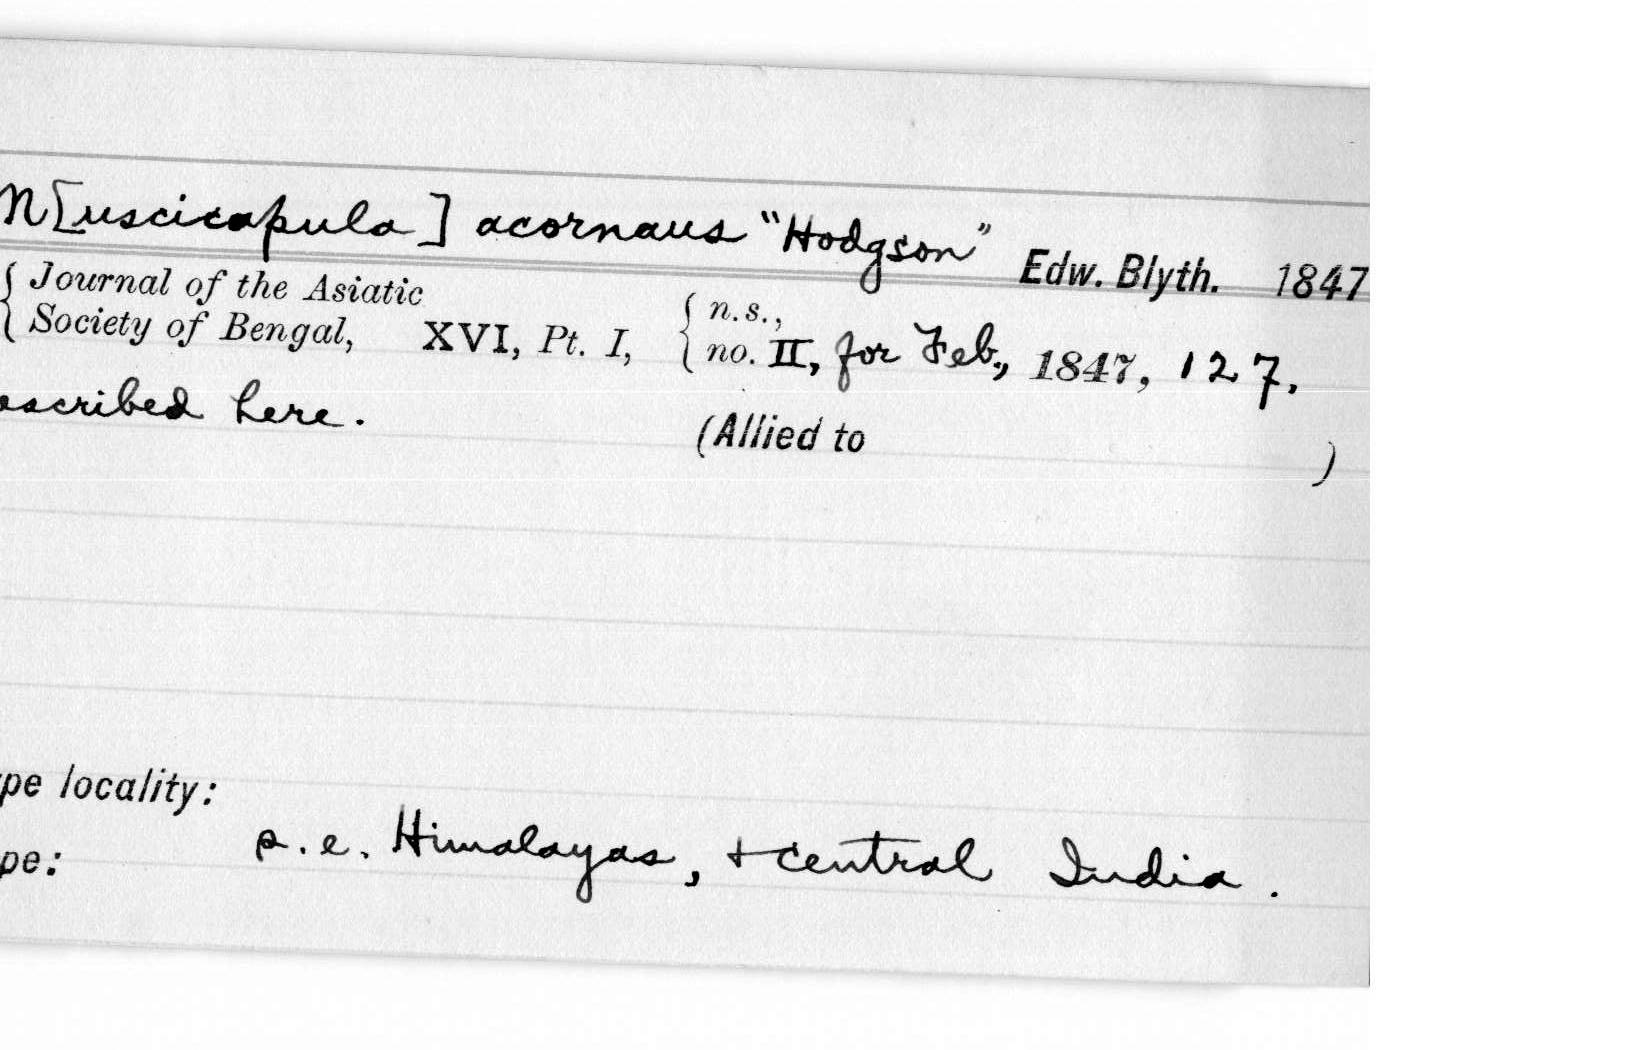 M[uscicapula] acornaus "Hodgson" Edw. Blyth. 1847
Journal of the Asiatic
Society of Bengal, XVI, Pt. I, n.s.,
no. II, for Feb., 1847, 127.
escribed here. (Allied to )
pe locality:
s.e. Himalayas, + central India.
pe: